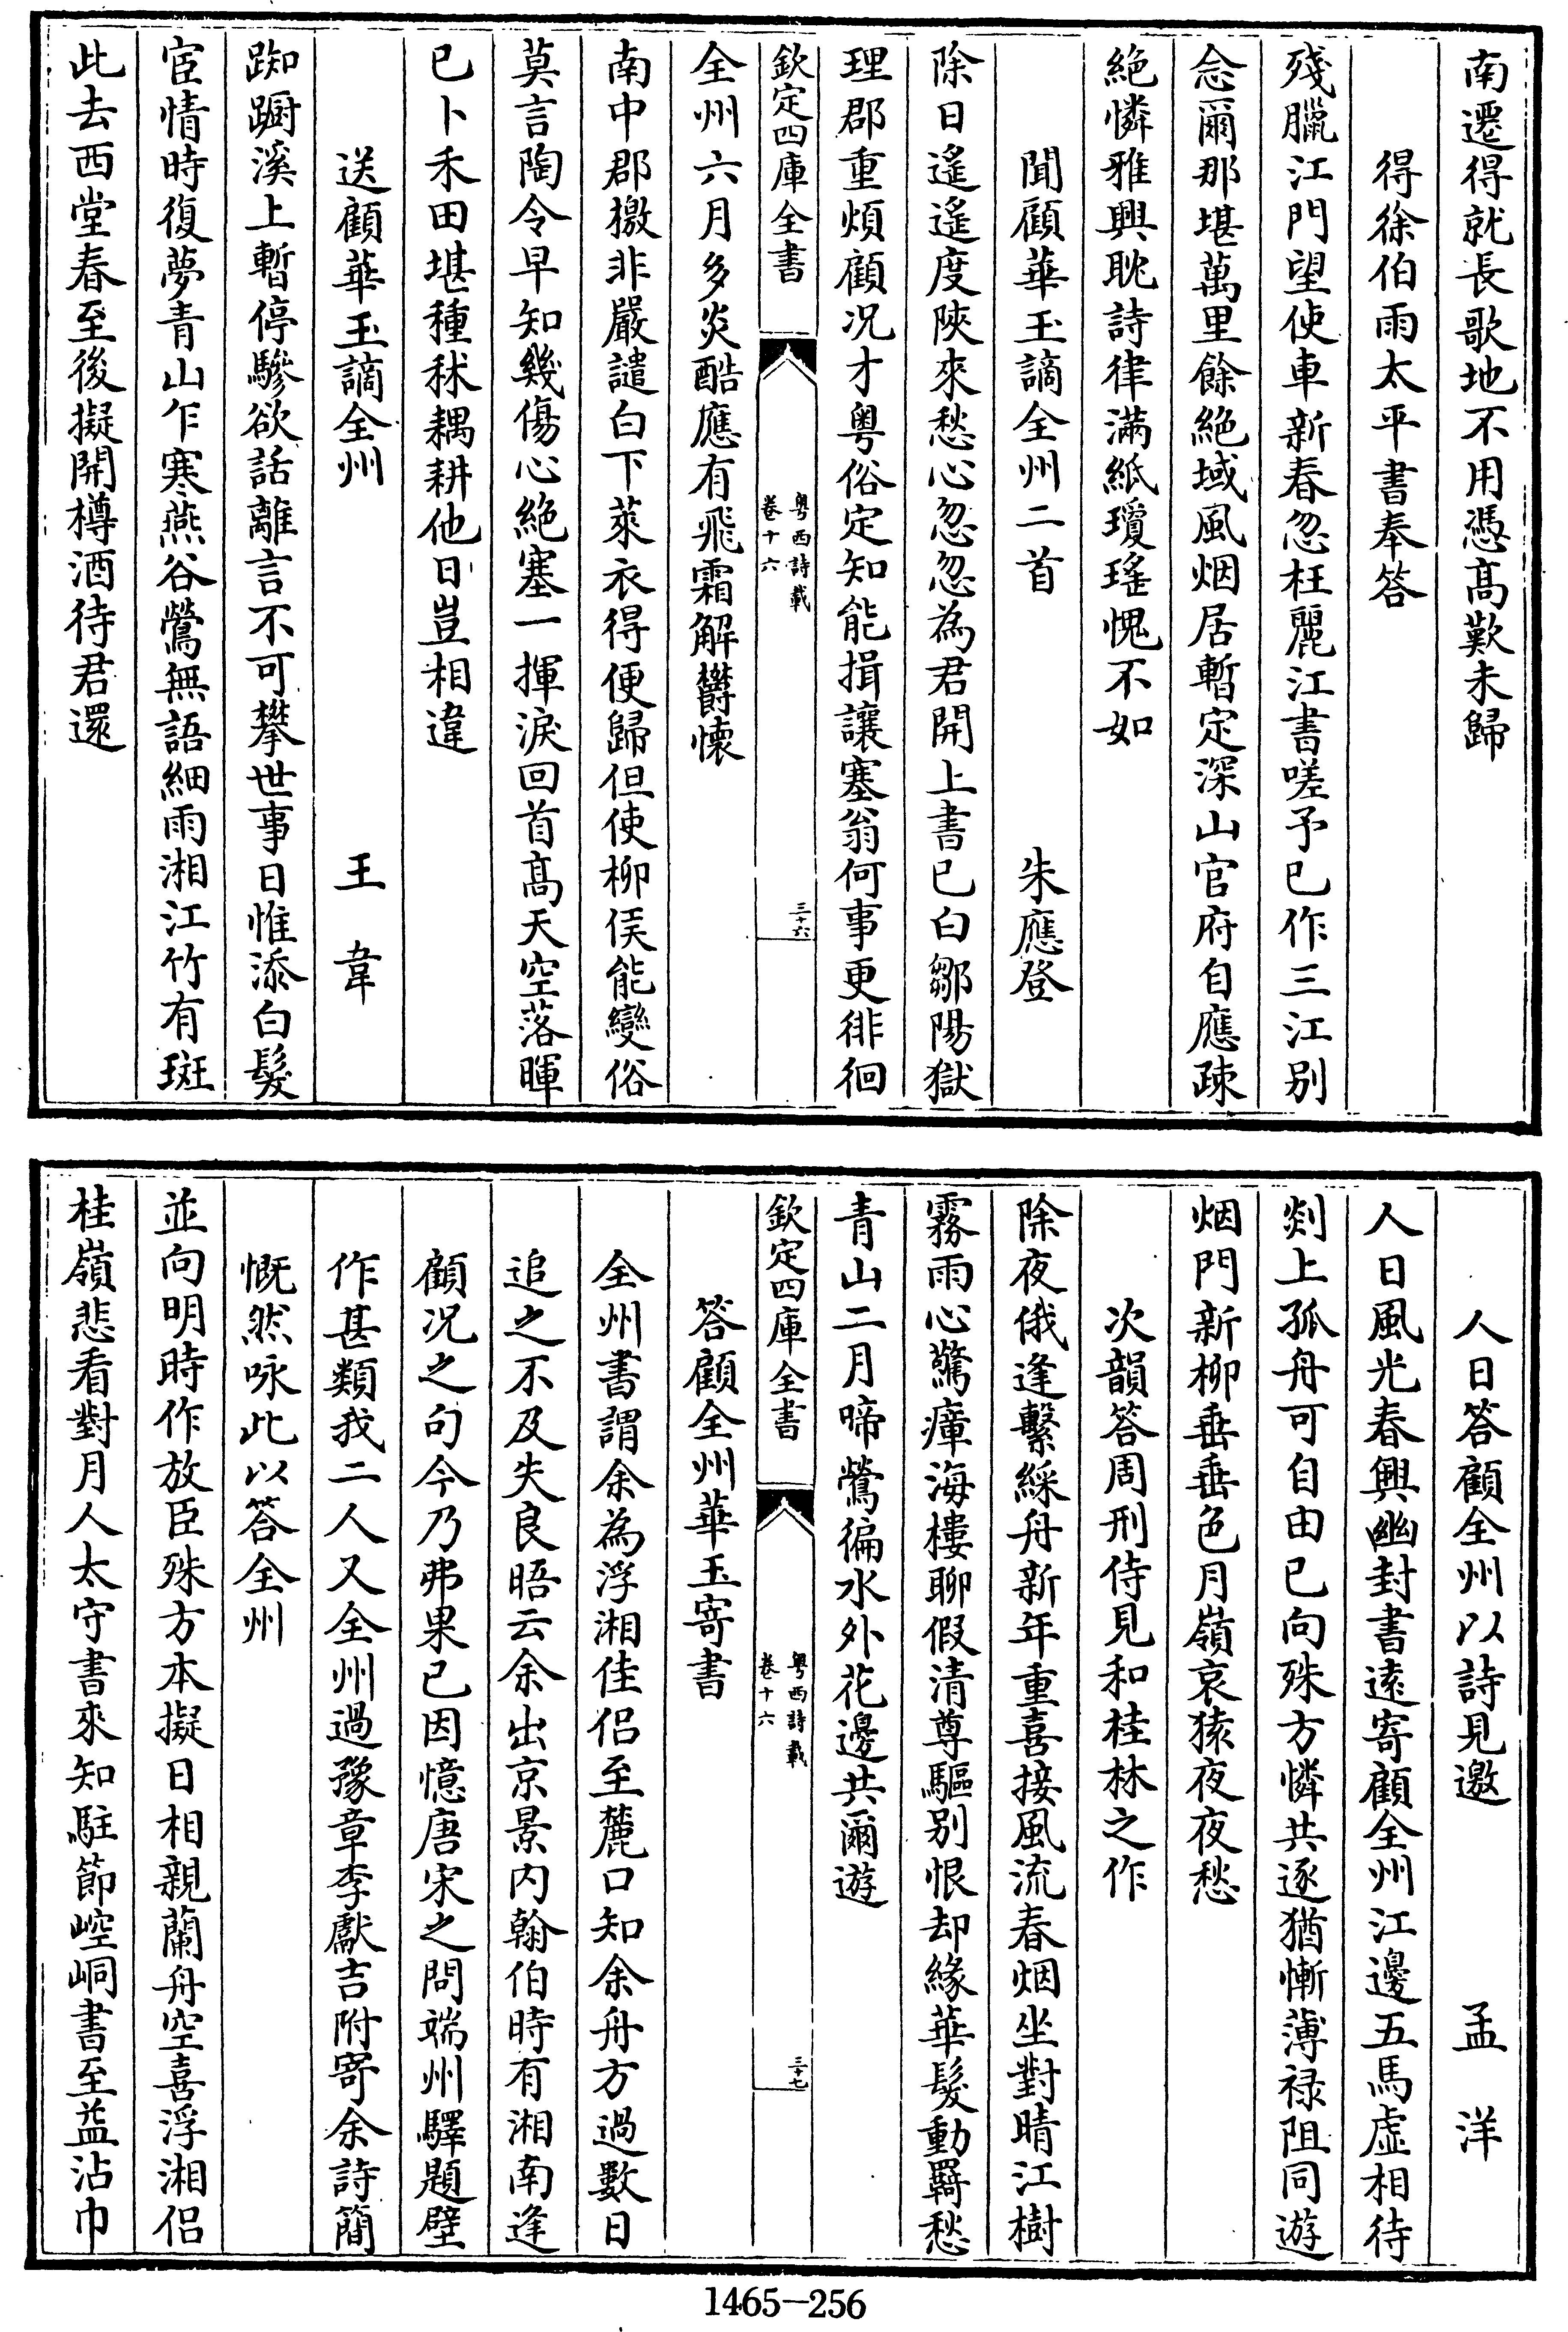 南遷得就長歌地不用憑髙歎未歸
得徐伯雨太平書奉答
殘臘江門望使車新春忽枉麗江書嗟予已作三江别
念爾那堪萬里餘絶域風烟居暫定深山官府自應疎
絶憐雅興耽詩律滿紙瓊瑤愧不如
聞顧華玉謫全州二首 朱應登
除日遙遙度陜來愁心忽忽為君開上書已白鄒陽獄
理郡重煩顧况才粤俗定知能揖讓塞翁何事更徘徊
欽定四庫全書 粤西詩載 卷十六 三十六
全州六月多炎酷應有飛霜解鬱懐
南中郡檄非嚴譴白下萊衣得便歸但使柳侯能變俗
莫言陶令早知幾傷心絶塞一揮淚回首髙天空落暉
已卜禾田堪種秫耦耕他日豈相違
送顧華玉謫全州 王韋
踟蹰溪上暫停驂欲話離言不可攀世事日惟添白髮
宦情時復夢青山乍寒燕谷鶯無語細雨湘江竹有斑
此去西堂春至後擬開樽酒待君還
人日答顧全州以詩見邀 孟洋
人日風光春興幽封書遠寄顧全州江邊五馬虛相待
剡上孤舟可自由已向殊方憐共逐猶慚薄禄阻同遊
烟門新柳垂垂色月嶺哀猿夜夜愁
次韻答周刑侍見和桂林之作
除夜俄逢繫綵舟新年重喜接風流春烟坐對晴江樹
霧雨心驚瘴海樓聊假清尊驅别恨却緣華髮動羇愁
青山二月啼鶯徧水外花邊共爾遊
欽定四庫全書 粤西詩載 卷十六 三十七
答顧全州華玉寄書
全州書謂余為浮湘佳侣至麓口知余舟方過數日
追之不及失良晤云余出京景内翰伯時有湘南逢
顧况之句今乃弗果已因憶唐宋之問端州驛題壁
作甚類我二人又全州過豫章李獻吉附寄余詩簡
慨然咏此以答全州
並向明時作放臣殊方本擬日相親蘭舟空喜浮湘侣
桂嶺悲看對月人太守書來知駐節崆峒書至益沾巾
1465-256